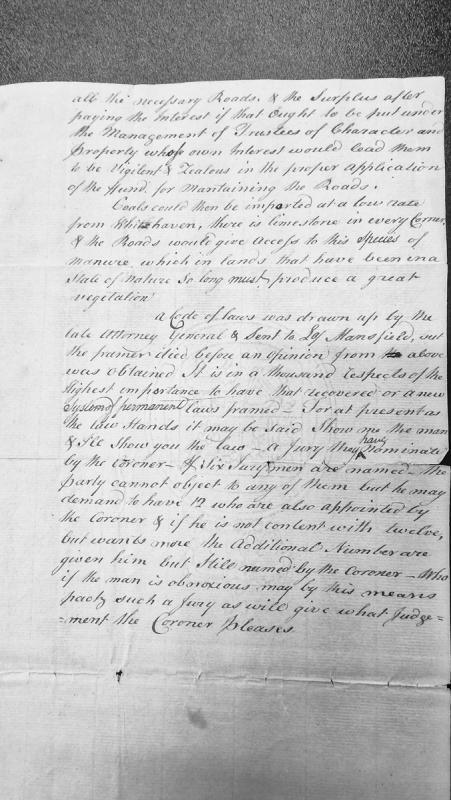 all the necessary Roads. & the Surplus after
paying the Interest if that Ought to be put under
the Management of Trustees of Character and
Property whose own Interest would lead them
to be Vigilent & Zealous in the proper application
of the Fund, for Mantaining the Roads.
Coals could then be imported at a low rate
from Whitehaven, there is limestone in every Corner,
& the Roads would give access to this species of
manure which in lands that have been in a
State of Nature so long must produce a great
vegetation!
a Code of laws was drawn up by the
late Attorney General & Sent to Ld Mansfield, but
the framer died before an opinion from above
was obtained It is in a thousand respects of the
highest importance to have that recovered or a new
System of permanent laws framed – For at present as
the law Stands it may be said Shew me the man
& Ile Show you the law – a Jury they have nominate
by the Coroner – If Six Jury men are named – the
party cannot object to any of them but he may
demand to have 12 who are also appointed by
the Coroner & if he is not content with twelve,
but wants more the Additional Number are
given him but Still named by the Coroner – Who
if the man is obnoxious may by this means
pack such a Jury as will give what Judge=
=ment the Coroner Pleases.